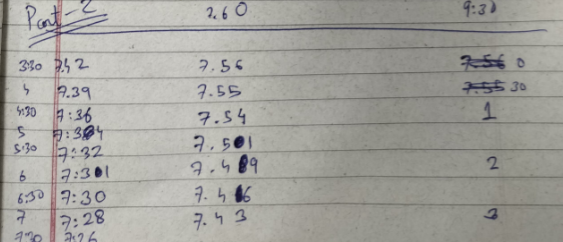 Part-2 7.60 9:30
3:30 7.42 7.56 7.56 0
4 7.39 7.55 7.55 30
4:30 7:36 7.54 1
5 7:34 7.51
5:30 7:32
6 7:31 7.49 2
6:30 7:30 7.46
7 7:28 7.43 3
7:30 7:26